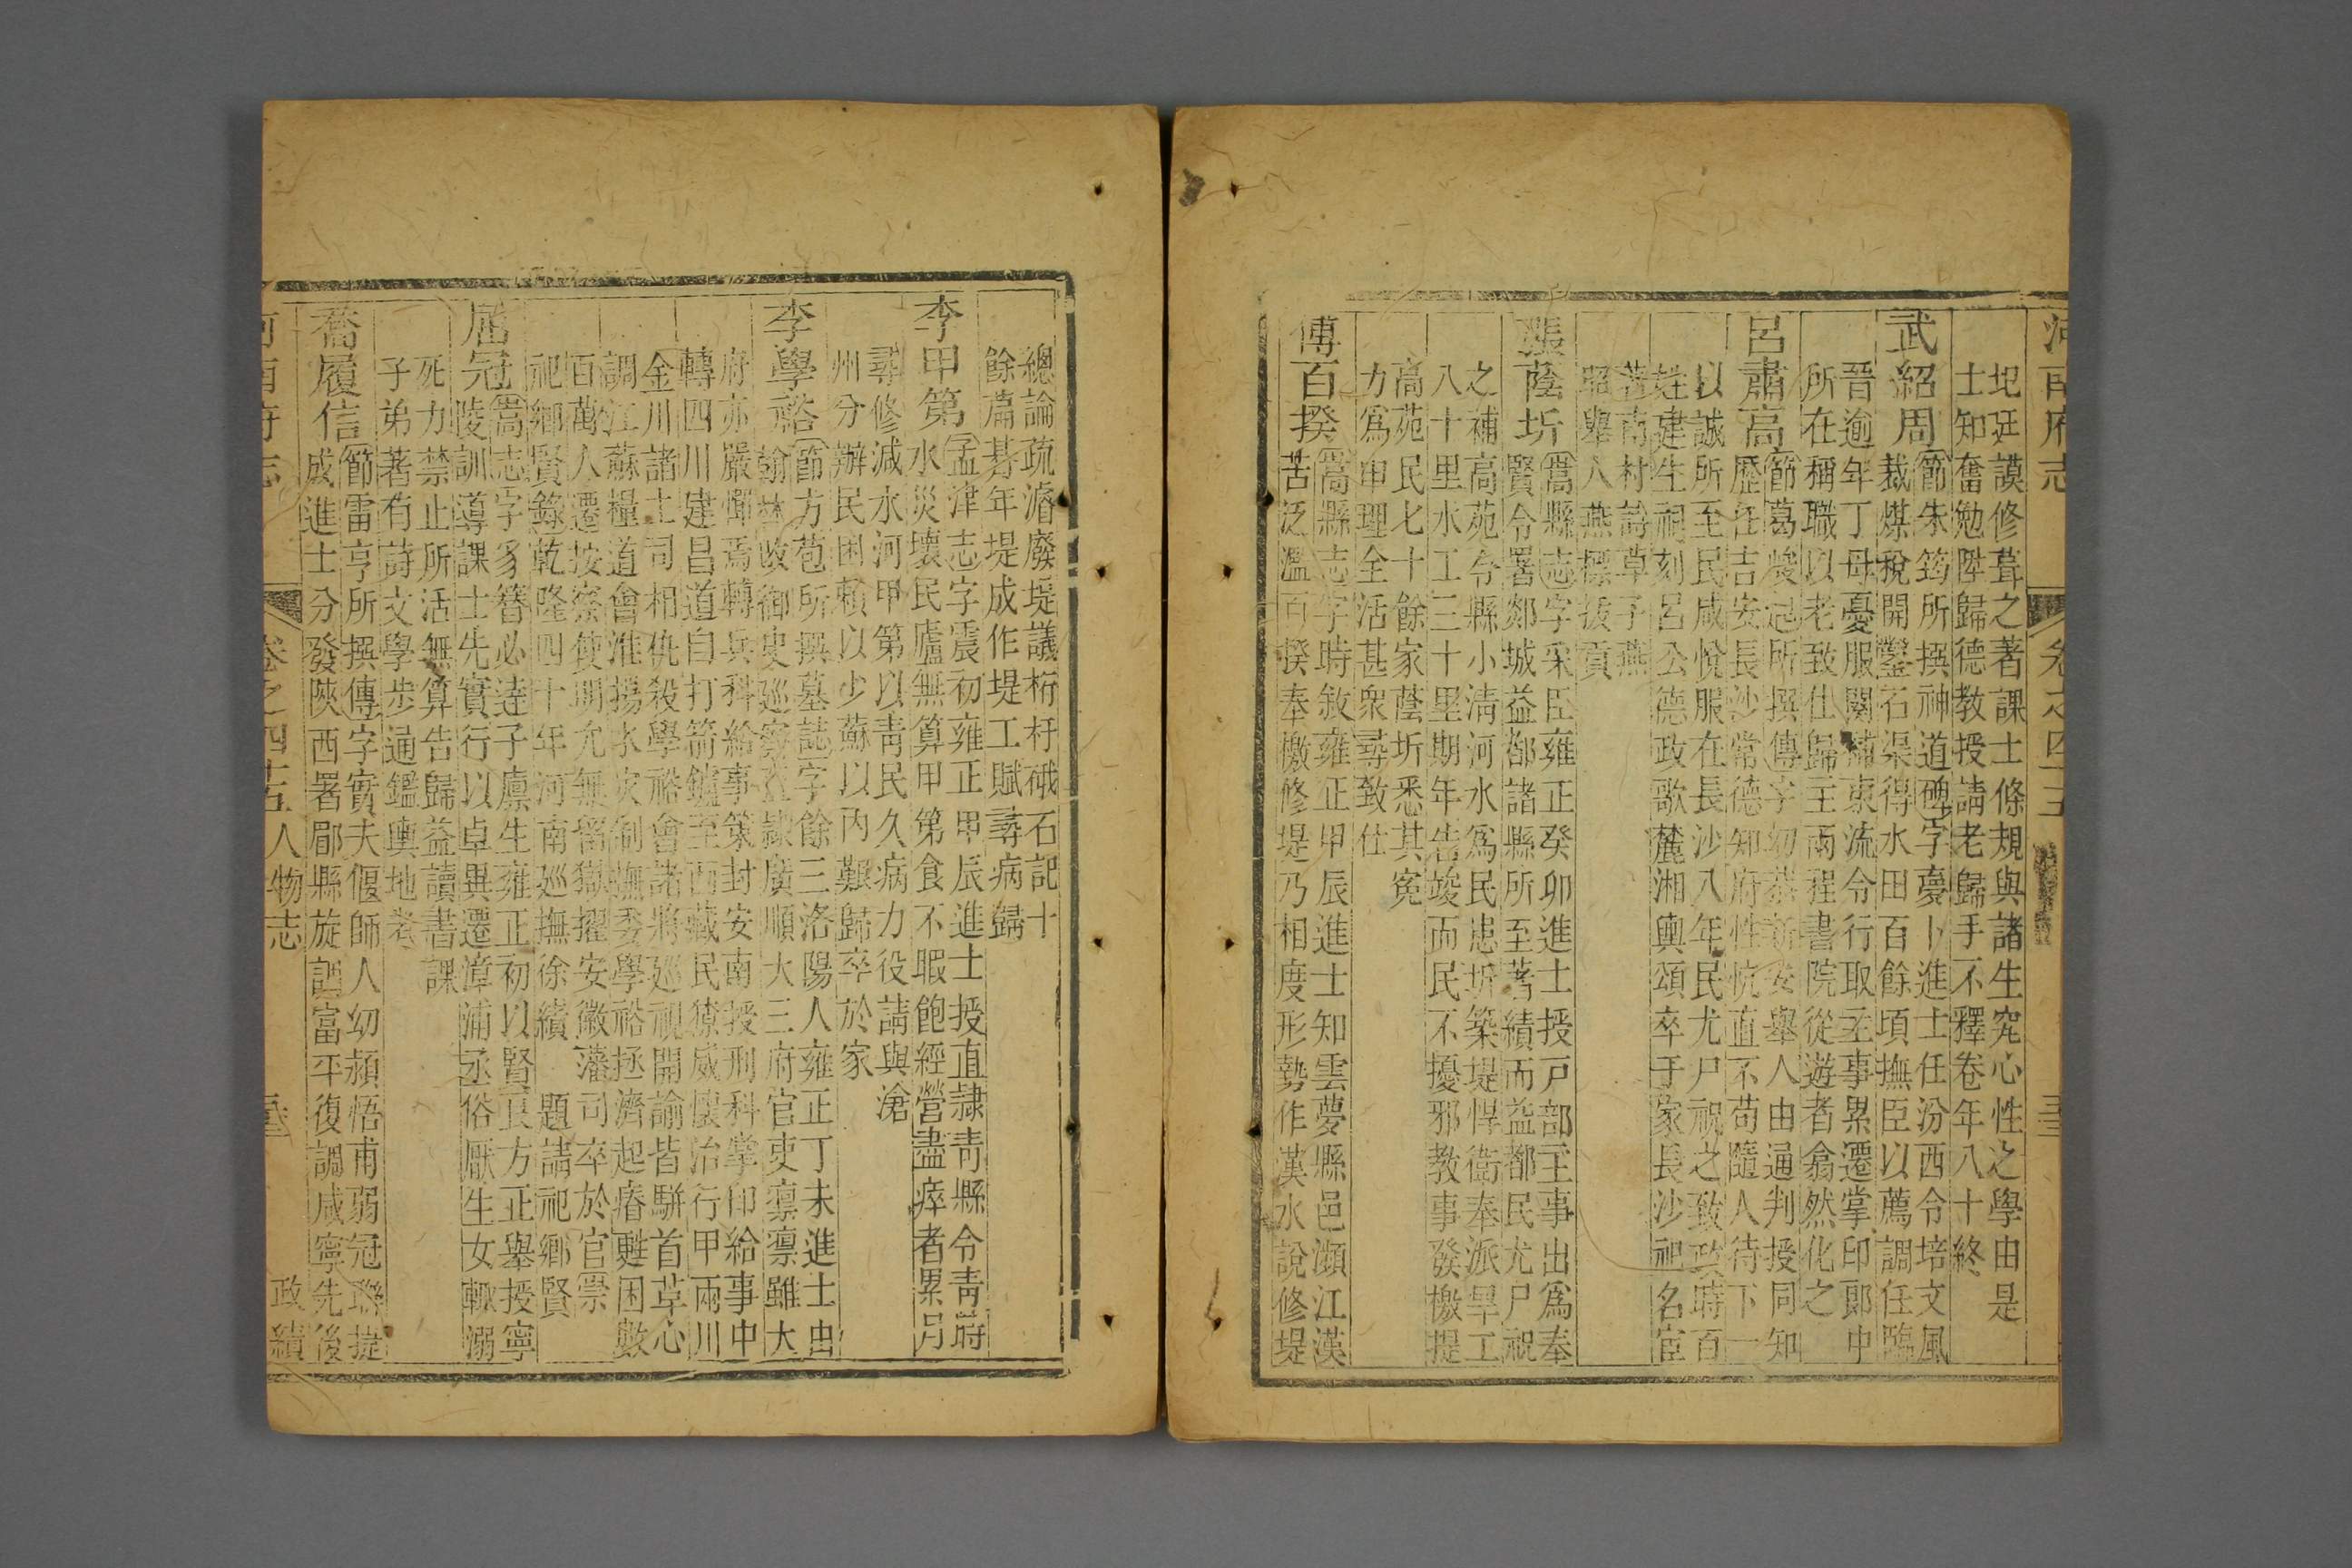 河南府志
卷之四十五
圮廷謨修葺之著課士條規與諸生究心性之學由是
士知奮勉陞歸德教授請老歸手不釋卷年八十終
武紹周
節朱筠所撰神道碑字夢卜進士任汾西令培文風
裁煤稅開鑿石渠得水田百餘頃撫臣以薦調任臨
晉逾年丁母憂服闋補東流令行取丞事累遷掌印郎中
所在稱職以老致仕歸主兩程書院從遊者翕然化之
呂肅高
節葛峻起所撰傳字幼恭新安舉人由通判授同知
歷任吉安長沙常德知府性伉直不苟隨人待下一
以誠所至民咸悅服在長沙八年民尤尸祝之致政時百
姓建生祠刻呂公德政歌麓湘輿頌卒于家長沙祀名宦
著南村詩草子燕
昭舉人燕標拔貢
張蔭圻
嵩縣志字采臣雍正癸卯進士授戸部主事出爲奉
賢令署郯城益都諸縣所至著績而益都民尤尸祝
之補高苑令縣小淸河水爲民患圻築堤悍衛奉派旱工
八十里水工三十里期年告竣而民不擾邪教事發檄提
高苑民七十餘家蔭圻悉其寃
力爲申理全活甚衆尋致仕
傅百揆
嵩縣志字時敘雍正甲辰進士知雲夢縣邑瀕江漢
苦泛濫百揆奉檄修堤乃相度形勢作漢水說修堤
總論疏濬廢堤議桁杅砥石記十
餘篇朞年堤成作堤工賦尋病歸
李甲第
孟津志字震初雍正甲辰進士授直隷靑縣令靑蔚
水災壞民廬無算甲第食不暇飽經營盡瘁者累月
尋修減水河甲第以靑民久病力役請與滄
州分辦民困賴以少蘇以內艱歸卒於家
李學裕
節方苞所撰墓誌字餘三洛陽人雍正丁未進士由
翰林改御史廵察直隷廣順大三府官吏禀禀雖大
府亦嚴憚焉轉兵科給事策封安南授刑科掌印給事中
轉四川建昌道自打箭鑪至西藏民獠威懷治行甲兩川
金川諸土司相仇殺學裕會諸將廵視開諭皆駢首革心
調江蘇糧道會淮揚水灾制撫委學裕拯濟起瘠甦困數
百萬人遷按察使明允無留獄擢安徽藩司卒於官崇
祀鄕賢錄乾隆四十年河南廵撫徐績 題請祀鄕賢
屈冠
嵩志字豸簪必達子廩生雍正初以賢良方正舉授寧
陵訓導課士先實行以卓異遷漳浦丞俗厭生女輒溺
死力禁止所活無算告歸益讀書課
子弟著有詩文學步通鑑輿地考
喬履信
節雷亨所撰傳字實夫偃師人幼頴悟甫弱冠聯捷
成進士分發陝西署郿縣旋調富平復調咸寧先後
河南府志
卷之四十五 人物志
政績